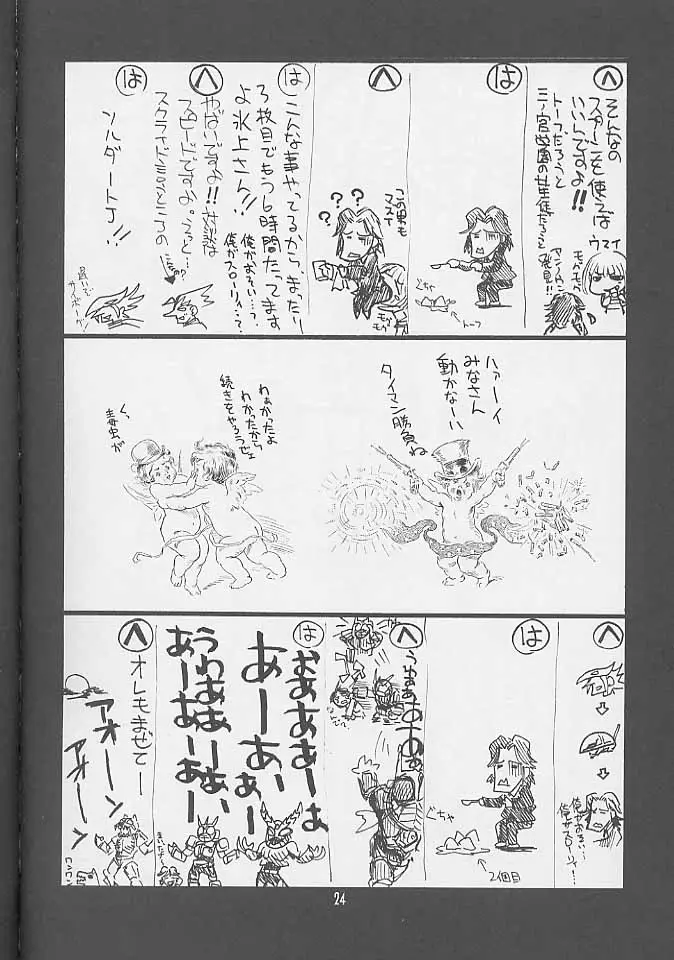 へ
そんなの
スターンを使えば
いいんですよ!!
トーフだろうと
三ノ宮学園の女生徒だろうと
ウマイ
モグモグ
は
ぐちゃ
トーフ
へ
この男も
マズイ
???
モグ
モグ
は
こんな事やってるから、まったり
3枚目でもう6時間たってます
よ氷上さん!!
俺がおそい…?
俺がスローリィ…?
へ
やばいですよ!!対談は
スピードですよ。えっと…
スクライド言うところの
は
ソルダートJ!!
ハァーイ
みなさん
動かなーい
タイマン勝負ね
わぁかったよ
わかったから
続きをやろうぜぇ
く、
毒虫が
へ
俺がおそい…
俺がスローリィ…?
は
ぐちゃ
2個目
へ
うわぁぁあーあぁ
は
おぁああーぁ
あーあぁー
あーあぁー
うわぁぁーぁぁ、
あーあーぁー
へ
オレもまぜてー
アオーン
アオーン
ワンワン
24